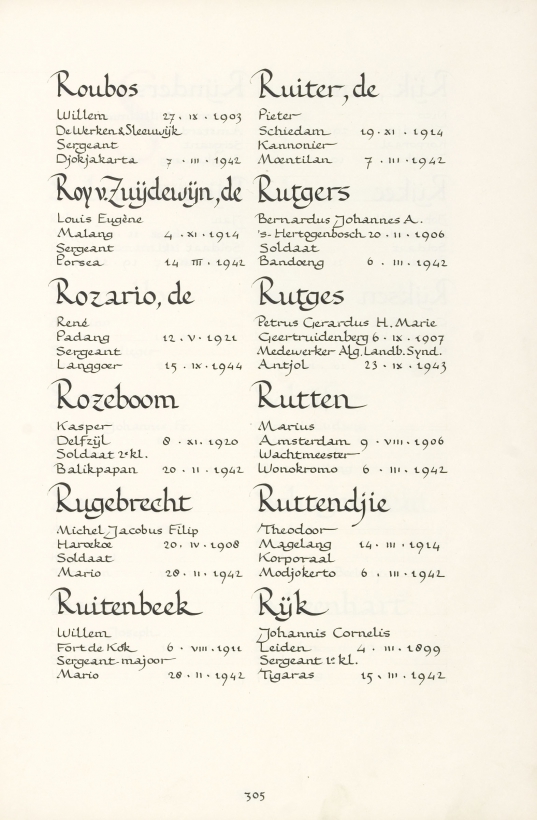 Roubos
Willem 27 · IX · 1903
De Werken & Sleeuwijk
Sergeant
Djokjakarta 7 · III · 1942
Roy v. Zuijdewijn, de
Louis Eugène
Malang 4 · XI · 1914
Sergeant
Porsea 14 III · 1942
Rozario, de
René
Padang 12 · V · 1921
Sergeant
Langgoer 15 · IX · 1944
Rozeboom
Kasper
Delfzijl 8 · XI · 1920
Soldaat 2e kl.
Balikpapan 20 · II · 1942
Rugebrecht
Michel Jacobus Filip
Haroekoe 20 · IV · 1908
Soldaat
Mario 28 · II · 1942
Ruitenbeek
Willem
Fort de Kock 6 · VIII · 1911
Sergeant-majoor
Mario 28 · II · 1942
Ruiter, de
Pieter
Schiedam 19 · XI · 1914
Kannonier
Moentilan 7 · III · 1942
Rutgers
Bernardus Johannes A.
's-Hertogenbosch 20 · II · 1906
Soldaat
Bandoeng 6 · III · 1942
Rutges
Petrus Gerardus H. Marie
Geertruidenberg 6 · IX · 1907
Medewerker Alg. Landb. Synd.
Antjol 23 · IX · 1943
Rutten
Marius
Amsterdam 9 · VIII · 1906
Wachtmeester
Wonokromo 6 · III · 1942
Ruttendjie
Theodoor
Magelang 14 · III · 1914
Korporaal
Modjokerto 6 · III · 1942
Rijk
Johannis Cornelis
Leiden 4 · III · 1899
Sergeant 1e kl.
Tigaras 15 · III · 1942
305